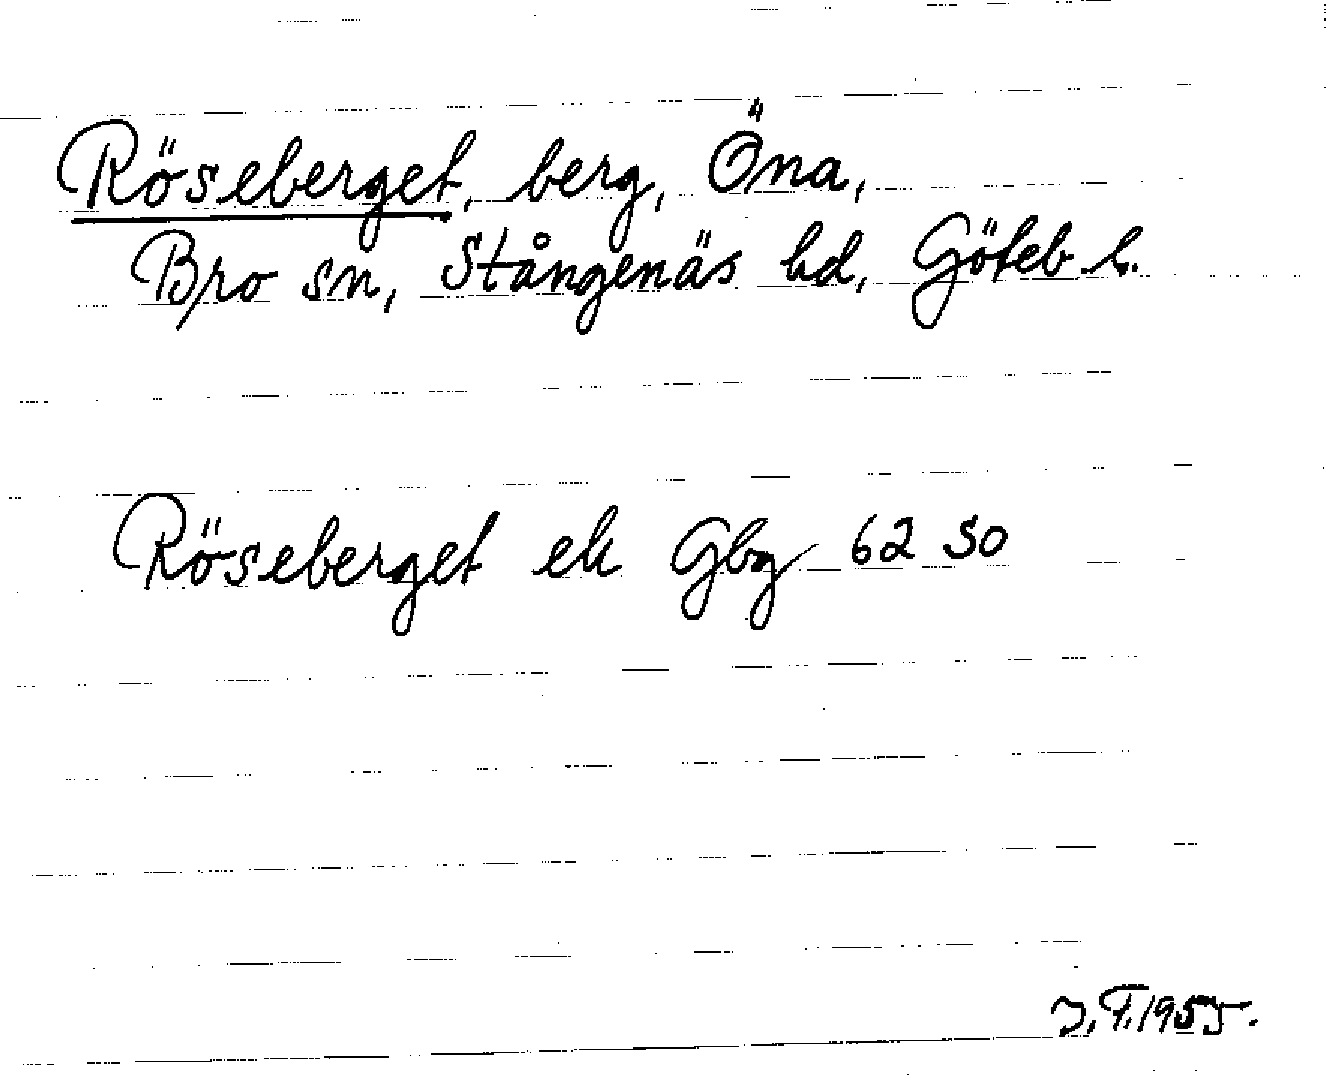 Röseberget, berg, Öna,
Bro sn, Stångenäs hd, Göteb l.
Röseberget ek Gbg 62 SO
J.F. 1955.